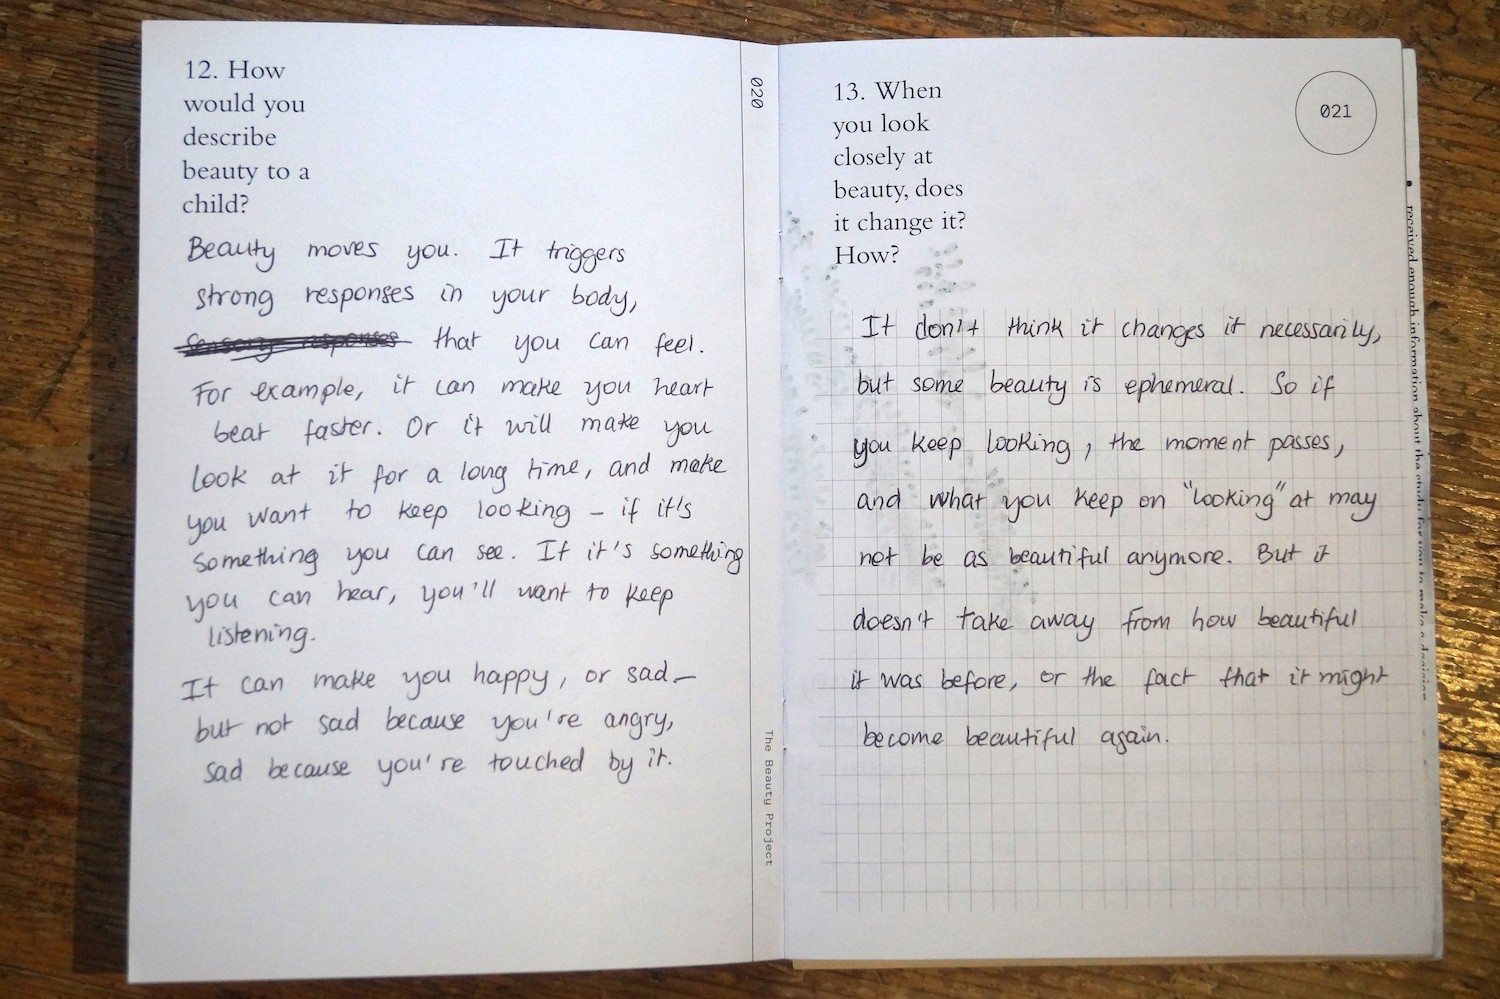 12. How
would you
describe
beauty to a
child?
Beauty moves you. It triggers
strong responses in your body,
sensory responses that you can feel.
For example, it can make you heart
beat faster. Or it will make you
look at it for a long time, and make
you want to keep looking – if it's
something you can see. If it's something
you can hear, you'll want to keep
listening.
It can make you happy, or sad –
but not sad because you're angry,
sad because you're touched by it.
020
The Beauty Project
13. When
you look
closely at
beauty, does
it change it?
How?
021
It don't think it changes it necessarily,
but some beauty is ephemeral. So if
you keep looking, the moment passes,
and what you keep on "looking" at may
not be as beautiful anymore. But it
doesn't take away from how beautiful
it was before, or the fact that it might
become beautiful again.
received enough information about the study for you to make a decision